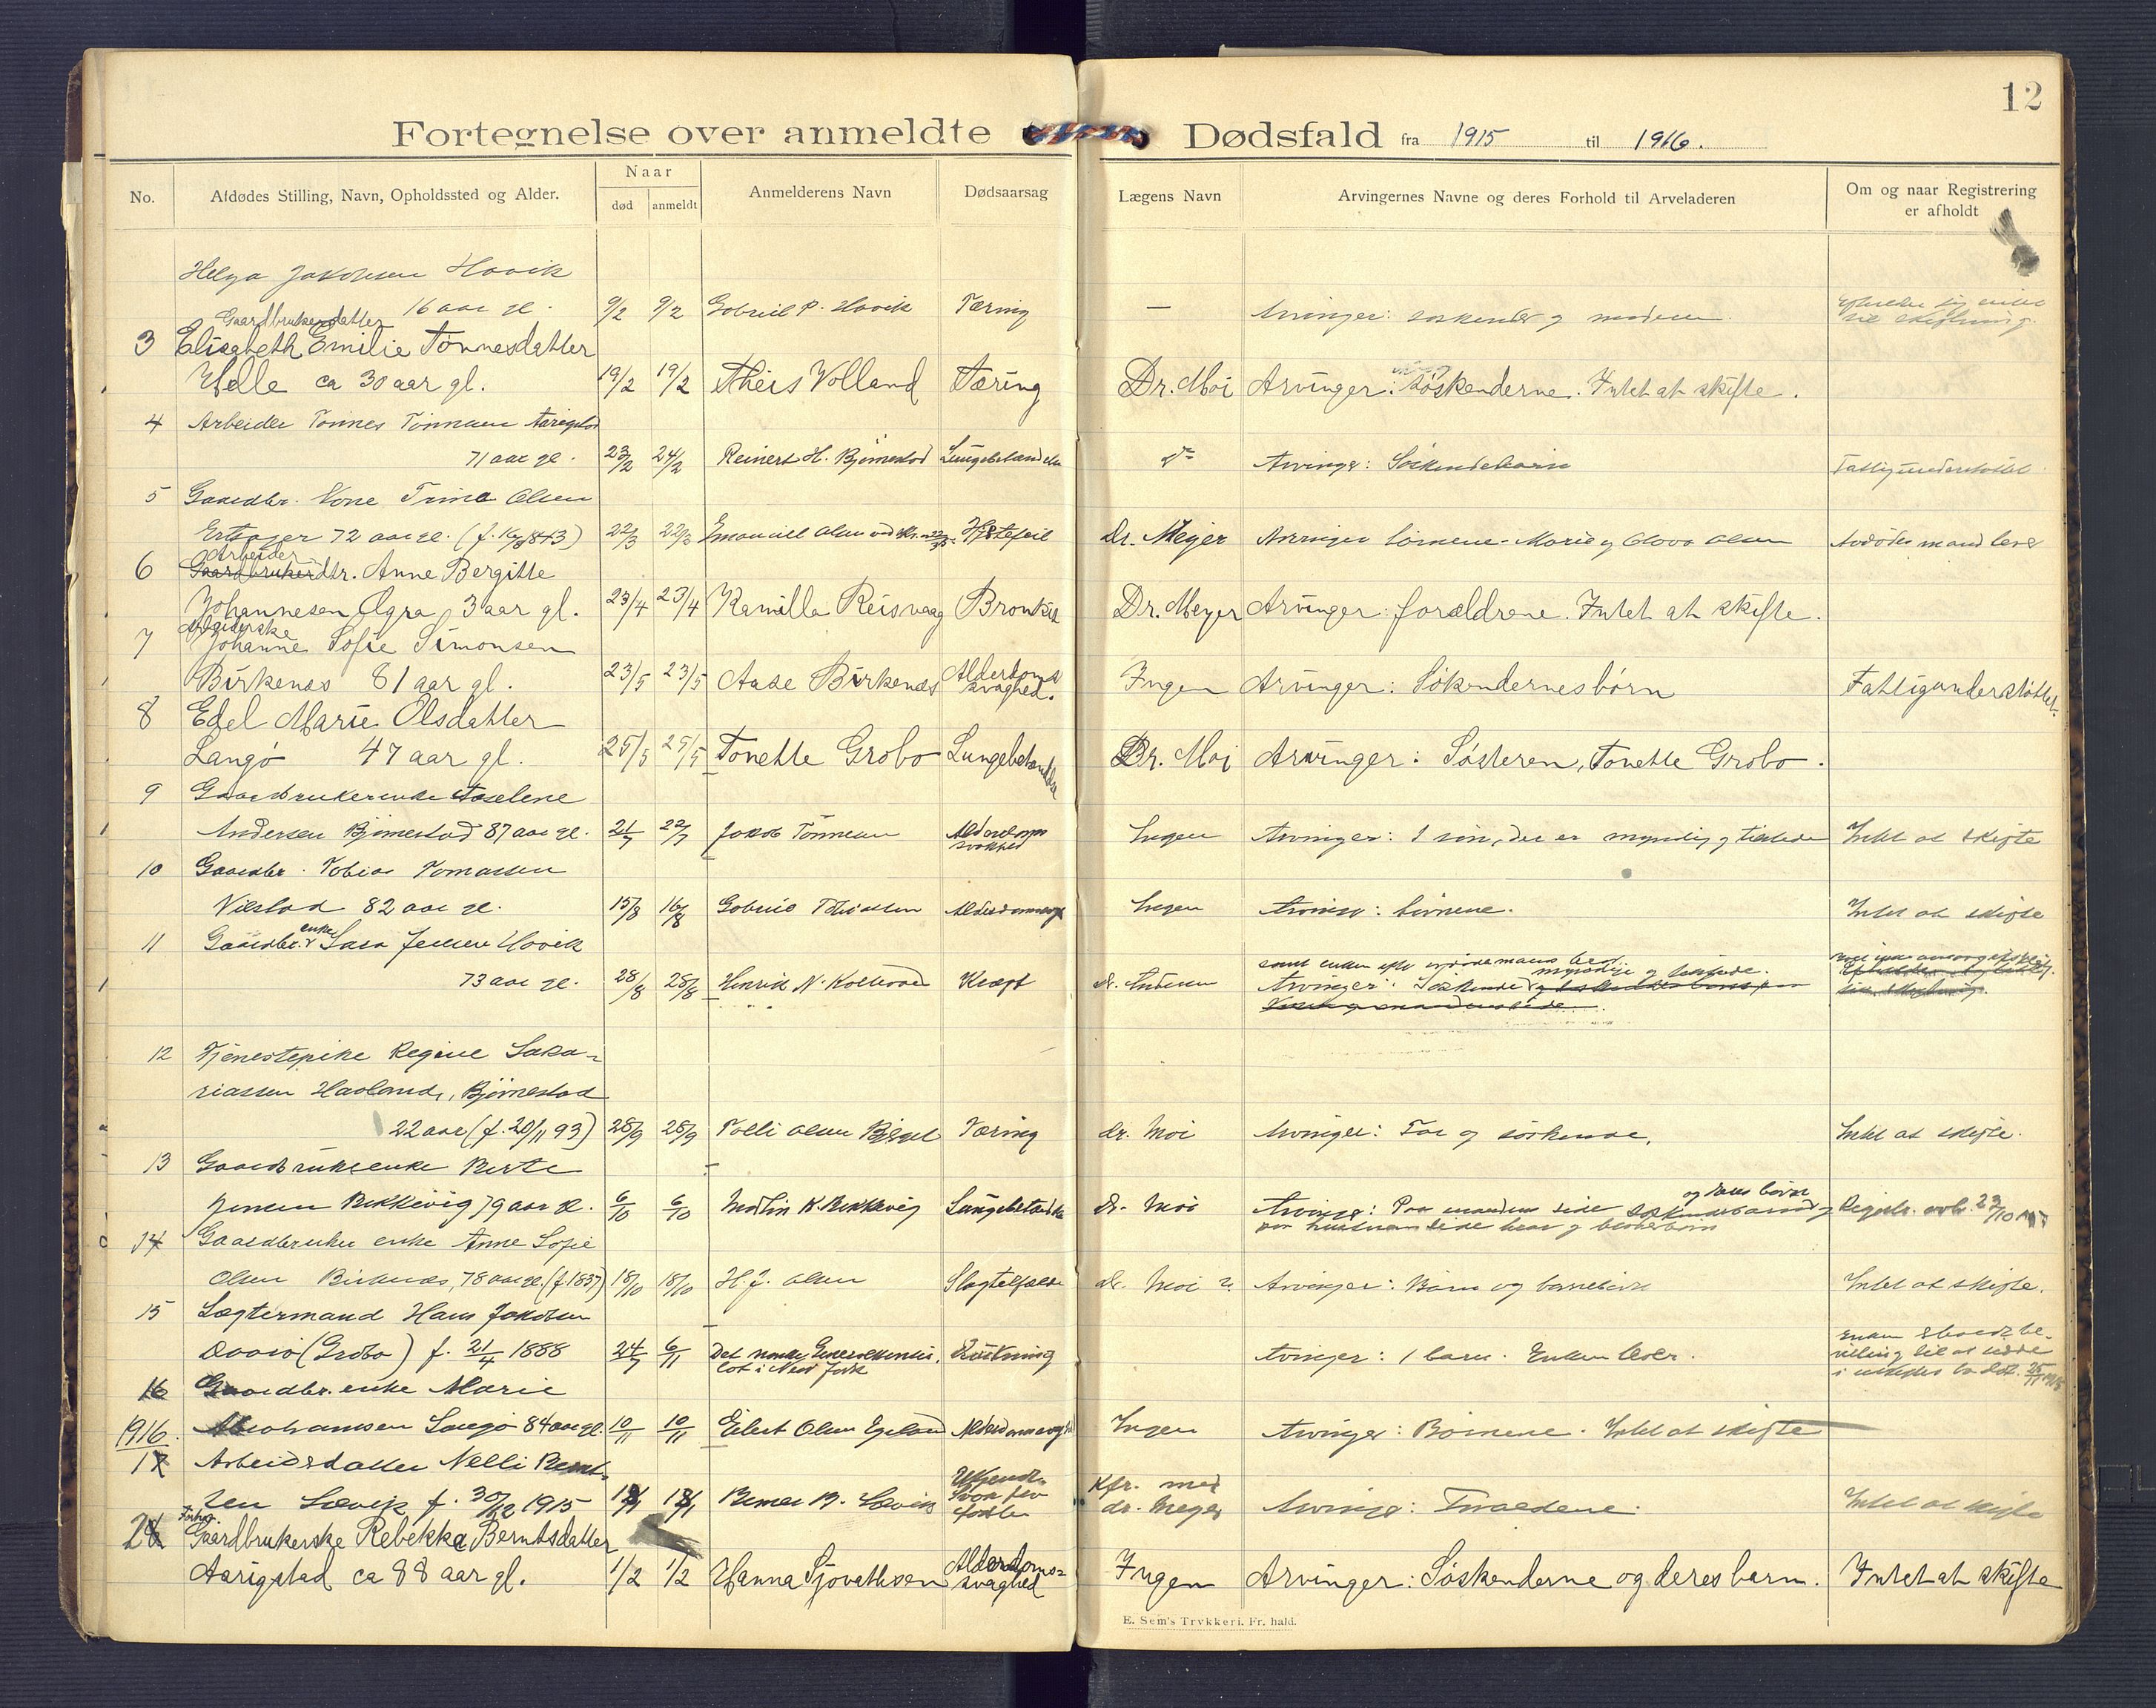 12
Fortegnelse over anmeldte Dødsfald fra 1915 til 1916.
No. Afdødes Stilling, Navn, Opholdssted og Alder. Naar død anmeldt Anmelderens Navn Dødsaarsag Lægens Navn Arvingernes Navne og deres Forhold til Arveladeren Om og naar Registrering er afholdt
Helga Jakobsen Hovik
16 aar gl. 9/2 9/2 Gabriel P. Hovik Tæring — Arvinger: søskende og moderen
Gaardbrukerdatter
3 Elisabeth Emilie Tønnesdatter
Helle ca 30 aar gl. 19/2 19/2 Theis Volland Tæring Dr. Moi Arvinger: Søskenderne. Intet at skifte.
4 Arbeider Tønnes Tønnesen Aarigstad
71 aar gl. 23/2 24/2 Reinert H. Bjørnestad Lungebetændelse do Arvinger: Søskendebarn Fattigunderstøttet
5 Gaardbr. Kone Trine Olsen
72 aar gl. 22/3 22/3 Emanuel Olsen Hjertefeil Dr. Meyer Arvinger børnene Marie og Olova Olsen Avdødes mand lever
Arbeider
6 Gaardbrukerdtr. Anne Bergitte
Johannesen Øgra 3 aar gl. 23/4 23/4 Kamilla Reisvaag Bronkit Dr. Meyer Arvinger: forældrene. Intet at skifte.
Arbeiderske
7 Johanne Sofie Simonsen
Birkenes 81 aar gl. 23/5 23/5 Aase Birkenes Alderdoms svaghed. Ingen Arvinger: Søkendernesbørn Fattigunderstøttet.
8 Edel Marie Olsdatter
Langø 47 aar gl. 25/5 25/5 Tonette Grobo Lungebetændelse Dr. Moi Arvinger: Søsteren, Tonette Grobo.
9 Gaardbrukerenke Aaselene
Andersen Bjørnestad 87 aar gl. 21/7 22/7 Jakob Tønnesen Alderdoms svakhed Ingen Arvinger: 1 søn, der er myndig og tilstede Intet at skifte
10 Gaardbr. Tobias Tomassen
82 aar gl. 15/8 16/8 Gabriel Tobiassen Alderdomssvagh Ingen Arvinger: børnene. Intet at skifte
11 Gaardbr. enke Sara Jensen Hovik
73 aar gl. 28/8 28/8 Henrik N. Kræft dr. Andersen Arvinger: Søskende myndige og tilstede.
12 Tjenestepike Regine Saka-
riassen Haaland, Bjørnestad
22 aar (f. 20/11 93) 28/9 28/9 Tolli Olsen Tæring dr. Moi Arvinger: Far og søskende. Intet at skifte.
13 Gaardbrukerenke Berte
Jensen Rekkevig 79 aar gl. 6/10 6/10 Lungebetændelse dr. Moi Arvinger: Paa mandens side søskendebarn og deres børn Registr. avh. 23/10
14 Gaardbruker enke Anne Sofie
Olsen Birkenes, 78 aar gl. (f. 1837) 18/10 18/10 H. J. Olsen Slagtilfælde dr. Moi Arvinger: Børn og barnebørn Intet at skifte.
15 Lægtermand Hans Jakobsen
(Grobo) f. 21/4 1888 24/7 6/11 Det norske Generalkonsu- lat i New York Drukning Arvinger: 1 barn. Enken lever.
16 Gaardbr. enke Marie
Abrahamsen Langø 84 aar gl. 10/11 10/11 Eilert Olsen Egeland Alderdomssvaghed Ingen Arvinger: Børnene. Intet at skifte
1916.
1 Arbeidsdatter Nelli Bernt-
sen Løvik f. 30/12 1915 18/1 18/1 Bernt B. Løvik Kfr. med dr. Meyer Arvinger: Forældrene. Intet at skifte
Forhv.
2 Gaardbrukerske Rebekka Berntsdatter
Aarigstad ca 88 aar gl. 1/2 1/2 Hanna Sjovathsen Alderdoms- svaghed Ingen Arvinger: Søskenderne og deres barn. Intet at skifte
E. Sem's Trykkeri. Fr. hald.